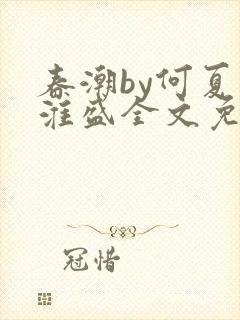 春潮by何夏
淮盛全文免
冠惜